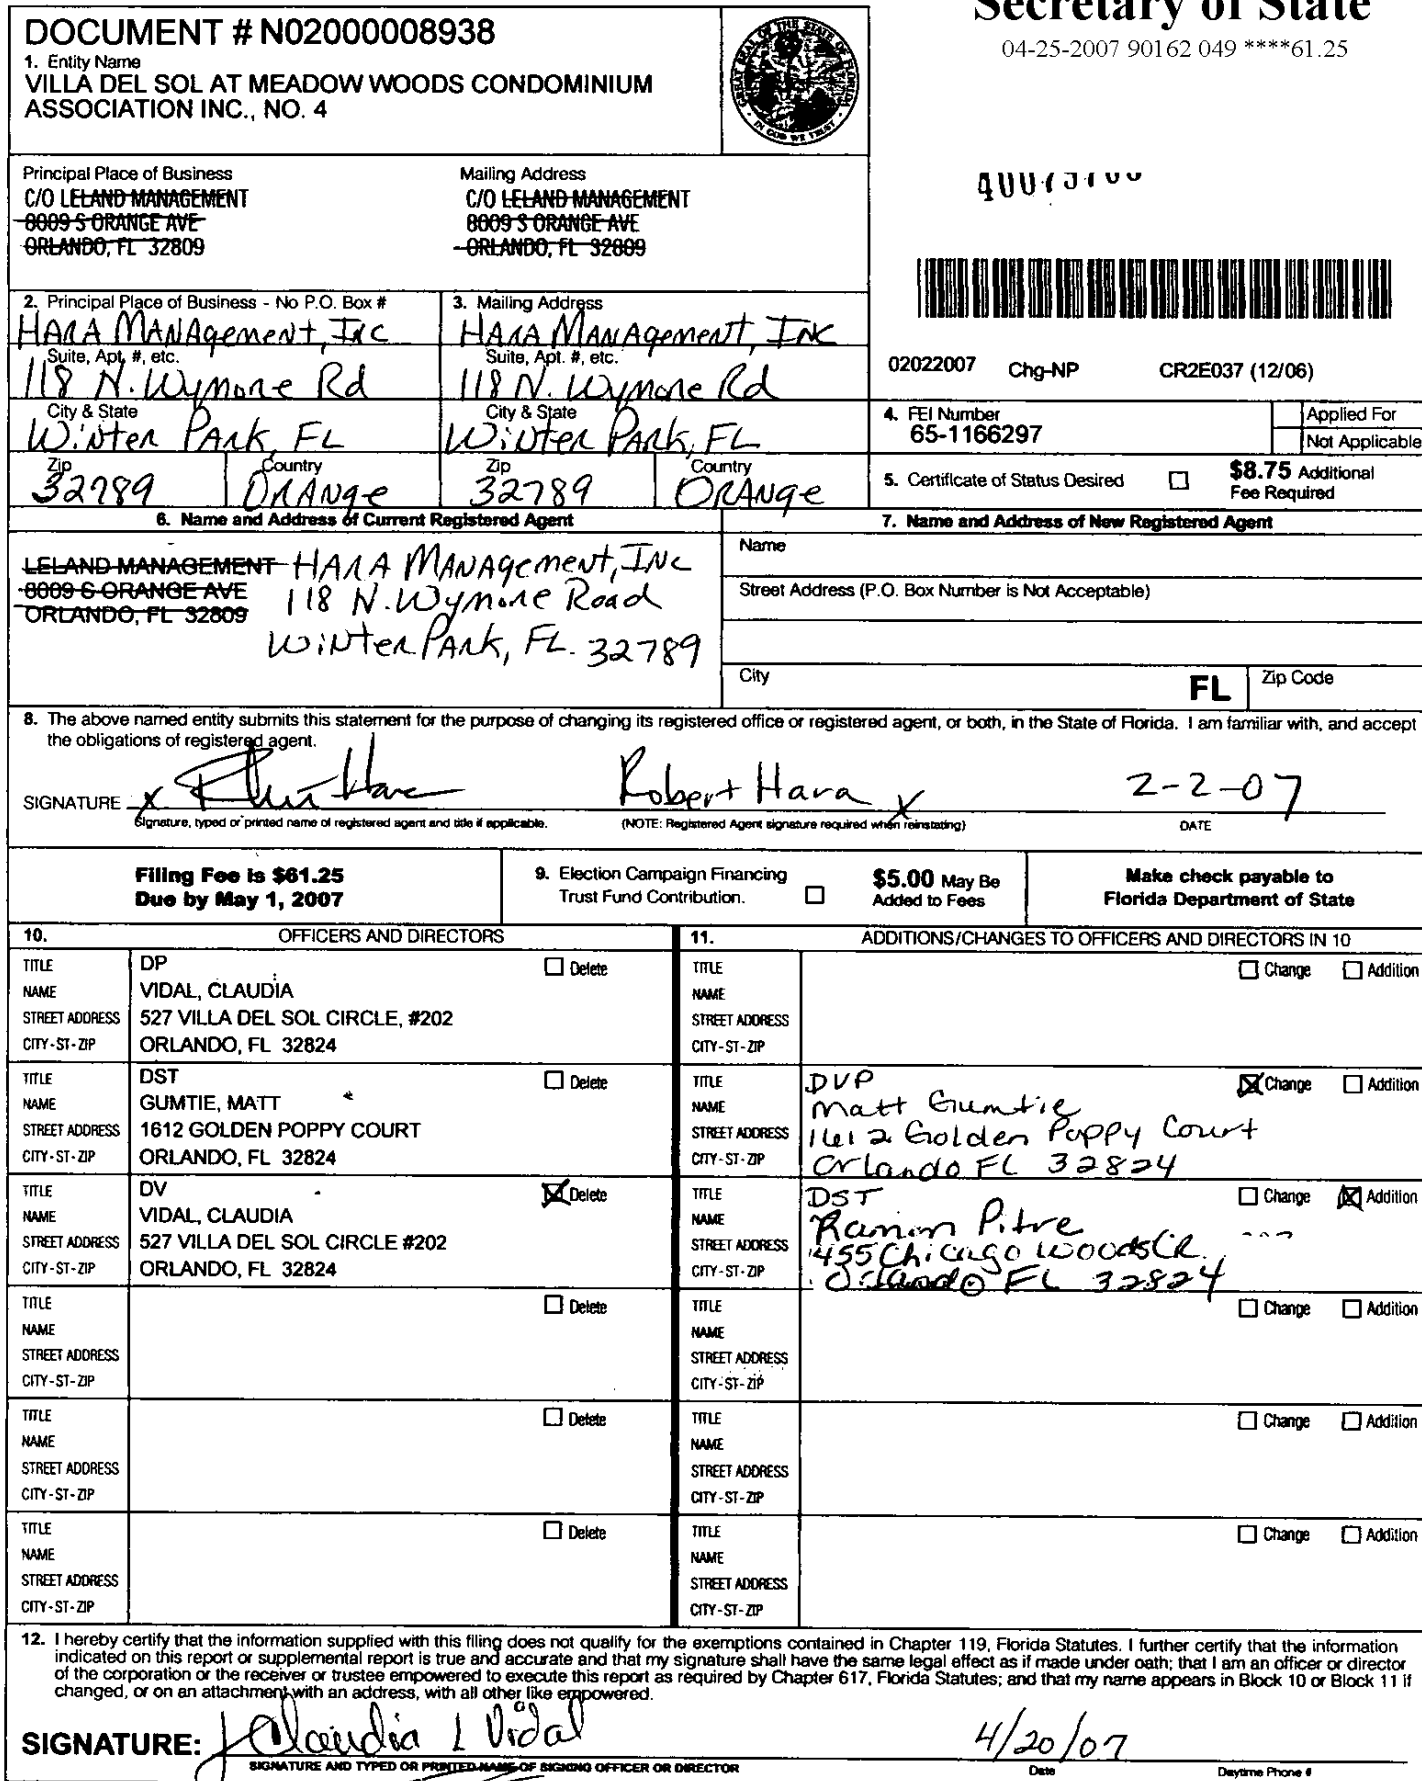 Secretary of State
04-25-2007 90162 049 ****61.25
DOCUMENT # N02000008938
1. Entity Name
VILLA DEL SOL AT MEADOW WOODS CONDOMINIUM
ASSOCIATION INC., NO. 4
Principal Place of Business
C/O LELAND MANAGEMENT
8009 S ORANGE AVE
ORLANDO, FL 32809
Mailing Address
C/O LELAND MANAGEMENT
8009 S ORANGE AVE
ORLANDO, FL 32809
2. Principal Place of Business - No P.O. Box #
HARA MANAgement, Inc
Suite, Apt. #, etc.
118 N. Wymore Rd
City & State
Winter Park, FL
Zip
32789
Country
ORANge
3. Mailing Address
HARA MANAgement, INC
Suite, Apt. #, etc.
118 N. Wymore Rd
City & State
Winter Park, FL
Zip
32789
Country
ORANge
02022007 Chg-NP CR2E037 (12/06)
4. FEI Number
65-1166297
Applied For
Not Applicable
5. Certificate of Status Desired
$8.75 Additional
Fee Required
6. Name and Address of Current Registered Agent
LELAND MANAGEMENT
8009 S ORANGE AVE
ORLANDO, FL 32809
HARA MANAgement, INC
118 N. Wymore Road
Winter Park, FL. 32789
7. Name and Address of New Registered Agent
Name
Street Address (P.O. Box Number is Not Acceptable)
City
FL
Zip Code
8. The above named entity submits this statement for the purpose of changing its registered office or registered agent, or both, in the State of Florida. I am familiar with, and accept
the obligations of registered agent.
SIGNATURE x Robert Hara x 2-2-07
Signature, typed or printed name of registered agent and title if applicable. (NOTE: Registered Agent signature required when reinstating) DATE
Filing Fee is $61.25
Due by May 1, 2007
9. Election Campaign Financing
Trust Fund Contribution.
$5.00 May Be
Added to Fees
Make check payable to
Florida Department of State
10. OFFICERS AND DIRECTORS
TITLE DP Delete
NAME VIDAL, CLAUDIA
STREET ADDRESS 527 VILLA DEL SOL CIRCLE, #202
CITY-ST-ZIP ORLANDO, FL 32824
TITLE DST Delete
NAME GUMTIE, MATT
STREET ADDRESS 1612 GOLDEN POPPY COURT
CITY-ST-ZIP ORLANDO, FL 32824
TITLE DV Delete
NAME VIDAL, CLAUDIA
STREET ADDRESS 527 VILLA DEL SOL CIRCLE #202
CITY-ST-ZIP ORLANDO, FL 32824
TITLE Delete
NAME
STREET ADDRESS
CITY-ST-ZIP
TITLE Delete
NAME
STREET ADDRESS
CITY-ST-ZIP
TITLE Delete
NAME
STREET ADDRESS
CITY-ST-ZIP
11. ADDITIONS/CHANGES TO OFFICERS AND DIRECTORS IN 10
TITLE Change Addition
NAME
STREET ADDRESS
CITY-ST-ZIP
TITLE DVP Change Addition
NAME Matt Gumtie
STREET ADDRESS 1612 Golden Poppy Court
CITY-ST-ZIP Orlando FL 32824
TITLE DST Change Addition
NAME Ramon Pitre
STREET ADDRESS 1455 Chicago Woods CR.
CITY-ST-ZIP Orlando FL 32824
TITLE Change Addition
NAME
STREET ADDRESS
CITY-ST-ZIP
TITLE Change Addition
NAME
STREET ADDRESS
CITY-ST-ZIP
TITLE Change Addition
NAME
STREET ADDRESS
CITY-ST-ZIP
12. I hereby certify that the information supplied with this filing does not qualify for the exemptions contained in Chapter 119, Florida Statutes. I further certify that the information
indicated on this report or supplemental report is true and accurate and that my signature shall have the same legal effect as if made under oath; that I am an officer or director
of the corporation or the receiver or trustee empowered to execute this report as required by Chapter 617, Florida Statutes; and that my name appears in Block 10 or Block 11 if
changed, or on an attachment with an address, with all other like empowered.
SIGNATURE: Claudia L Vidal 4/20/07
SIGNATURE AND TYPED OR PRINTED NAME OF SIGNING OFFICER OR DIRECTOR Date Daytime Phone #